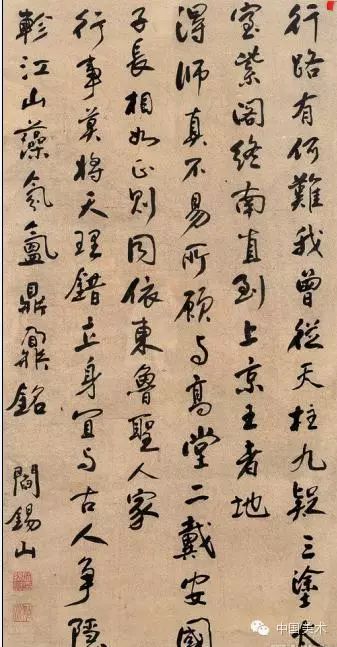 行路有何難我曾從天柱九疑三塗太
室紫閣終南直到上京王者地
得師真不易所願与高堂二戴安國
子長相如正則同依東魯聖人家
行事莫將天理錯立身宜与古人争隱
軫江山藻氛氳鼎鼐銘
閻錫山
中国美术